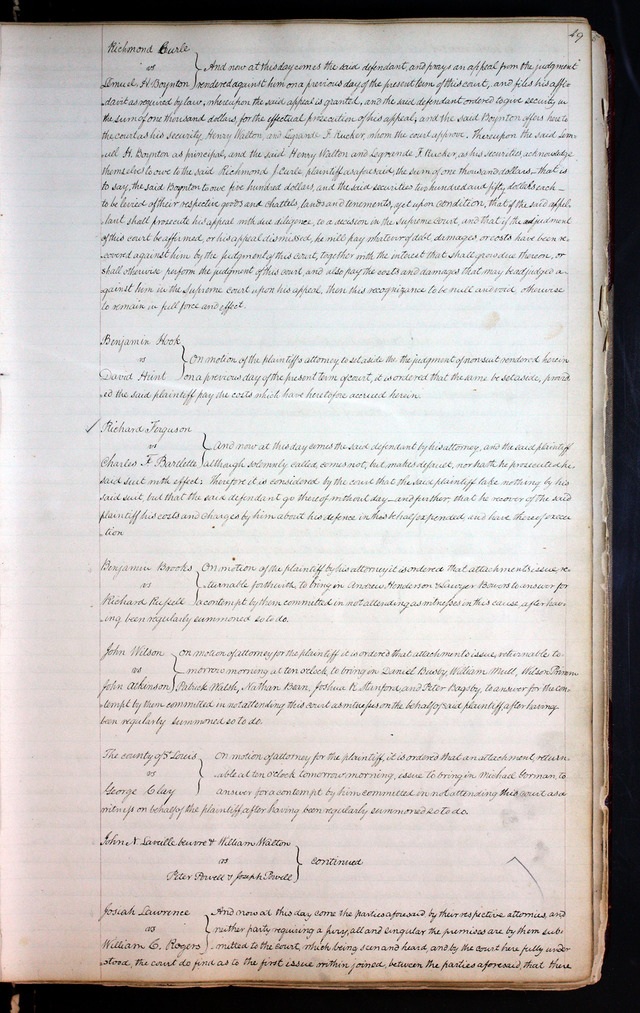 49
Richmond J Curle
vs
Lemuel H. Boynton
And now at this day comes the said defendant, and prays an appeal from the judgment
rendered against him on a previous day of the present term of this court, and files his affi-
davit as required by law, whereupon the said appeal is granted, and the said defendant ordered to give security in
the sum of one thousand dollars, for the effectual prosecution of his appeal, and the said Boynton offers here to
the court as his security Henry Walton, and Legrande F. Rucker, whom the court approve. Thereupon the said Lem-
uell H. Boynton as principal, and the said Henry Walton and Legrande F. Rucker, as his securities acknowledge
themselves to owe to the said Richmond J Curle plaintiff as aforesaid, the sum of one thousand dollars_ that is
to say, the said Boynton to owe five hundred dollars, and the said securities two hundred and fifty dollars each_
to be levied of their respective goods and chattels, lands and tenements, yet upon condition, that if the said appel-
lant shall prosecute his appeal with due diligence, to a decision in the Supreme Court, and that if the judgment
of this court be affirmed, or his appeal dismissed, he will pay whatever of debt, damages, or costs have been re-
covered against him by the judgment of this court, together with the interest that shall grow due thereon, or
shall otherwise perform the judgment of this court, and also pay the costs and damages that may be adjudged a-
gainst him in the Supreme Court upon his appeal, then this recognizance to be null and void, otherwise
to remain in full force and effect.
Benjamin Hook
vs
David Hunt
On motion of the plaintiff's attorney to set aside the judgment of nonsuit rendered herein
on a previous day of the present term of court, it is ordered that the same be set aside, provid-
ed the said plaintiff pay the costs which have heretofore accrued herein.
Richard Ferguson
vs
Charles F. Bartlette
And now at this day comes the said defendant by his attorney, and the said plaintiff
although solemnly called, comes not, but makes default, nor hath he prosecuted his
said suit with effect: Therefore it is considered by the court that the said plaintiff take nothing by his
said suit, but that the said defendant go thereof without day_ and further, that he recover of the said
plaintiff his costs and charges by him about his defence in this behalf expended, and have thereof execu-
tion
Benjamin Brooks
vs
Richard Russell
On motion of the plaintiff by his attorney it is ordered that attachments issue, re-
turnable forthwith, to bring in Andrew Henderson & Sawyer Bowers to answer for
a contempt by them committed in not attending as witnesses in this cause, after hav-
ing been regularly summoned so to do.
John Wilson
vs
John Atkinson
On motion of attorney for the plaintiff it is ordered that attachments issue, returnable to-
morrow morning at ten o'clock, to bring in Daniel Busby, William Mull, Wilson Primm
Patrick Walsh, Nathan Bean, Joshua R. Stanford, and Peter Bagsby, to answer for the con-
tempt by them committed in not attending this court as witnesses on the behalf of said plaintiff after having
been regularly summoned so to do.
The county of St Louis
vs
George Clay
On motion of attorney for the plaintiff, it is ordered that an attachment, return-
able at ten o'clock tomorrow morning, issue to bring in Michael Gorman, to
answer for a contempt by him committed in not attending this court as a
witness on behalf of the plaintiff, after having been regularly summoned so to do.
John N. Laveille beuvre & William Walton
vs
Peter Powell & Joseph Powell
continued
Josiah Lawrence
vs
William C. Rogers
And now at this day come the parties aforesaid by their respective attornies, and
neither party requiring a jury, all and singular the premises are by them sub-
mitted to the court, which being seen and heard, and by the court here fully under
stood, the court do find as to the first issue within joined, between the parties aforesaid, that there